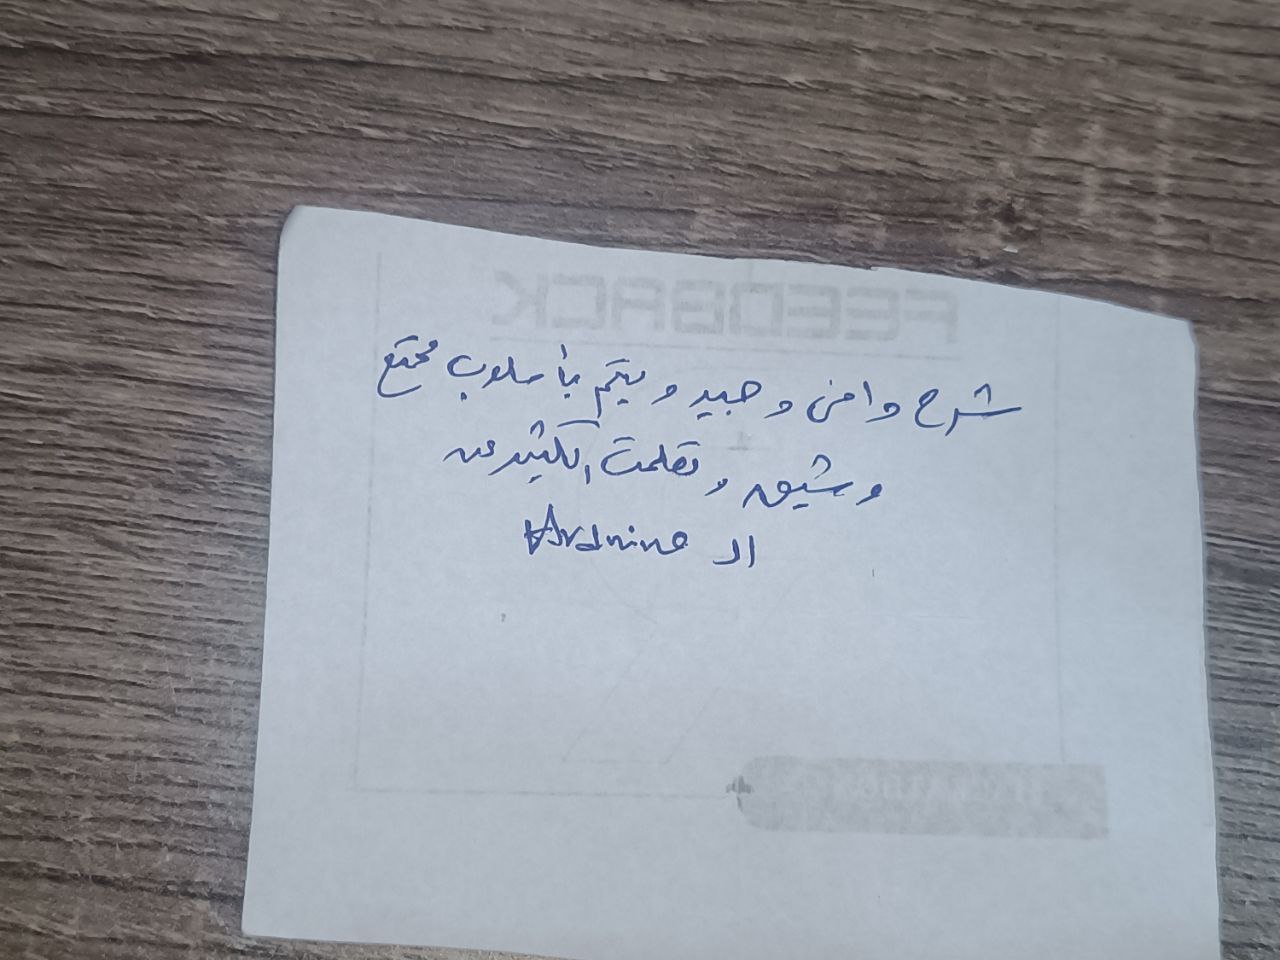 FEEDBACK
شرح وامن وجيد ويتم بأسلوب ممتع
وشيق وتعلمت الكثير من
ال Arduino